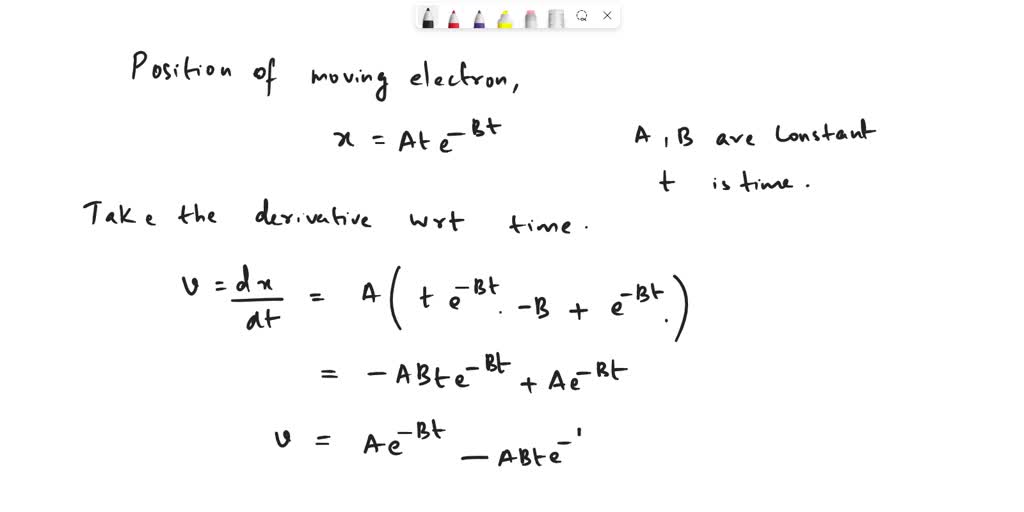 Position of moving electron,
x = At e^{-Bt}
A, B are constant
t is time.
Take the derivative wrt time.
v = dx/dt = A( t e^{-Bt} . -B + e^{-Bt} . )
= -ABt e^{-Bt} + A e^{-Bt}
v = A e^{-Bt} - ABt e^{-'}